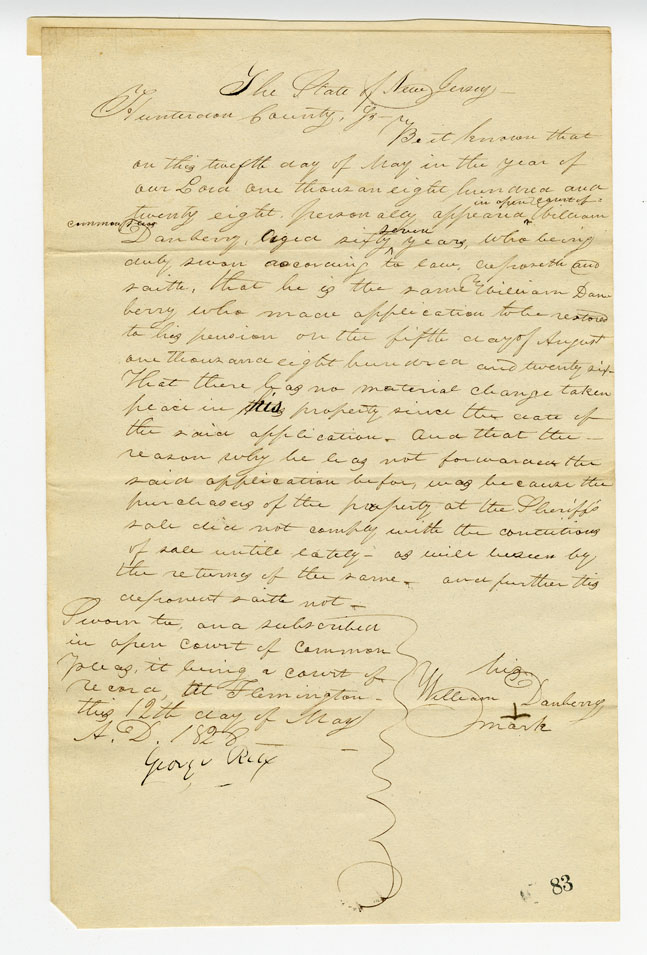 The State of New Jersey
Hunterdon County, Ss
Be it known that
on this twelfth day of May in the year of
our Lord one thousan eight hundred and
in open court of
twenty eight, personally appeared William
common pleas
seven
Danberry, Aged sixty years, who being
duly swon according to law, deposeth and
saith, that he is the same William Dan
berry who made application to be restored
to his pension on the fifth day of August
one thousand eight hundred and twenty six
That there has no material change taken
peace in his property since the date of
the said application. And that the
reason why he has not forwarded the
said application before, was because the
purchasers of the property at the Sheriff's
sale did not comply with the conditions
of sale untile lately - as will be seen by
the returns of the same. and further this
deponent saith not -
Sworn to, and subscribed
in open court of common
pleas, it being a court of
record, At Flemington
this 12th day of May
A. D. 1828
George Rea
his
William Danberry
mark
83